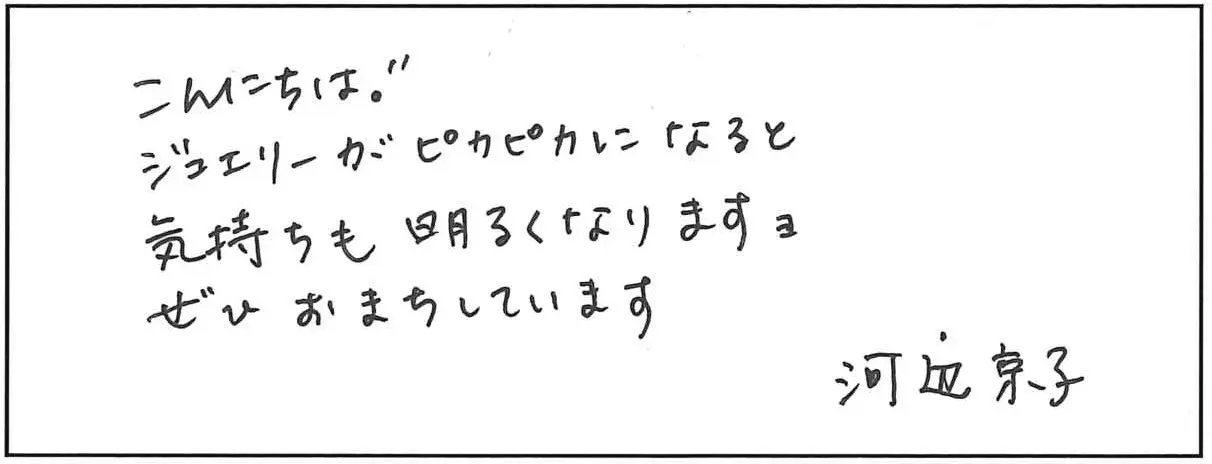 こんにちは。
ジュエリーがピカピカになると
気持ちも明るくなりますヨ
ぜひおまちしています
京子